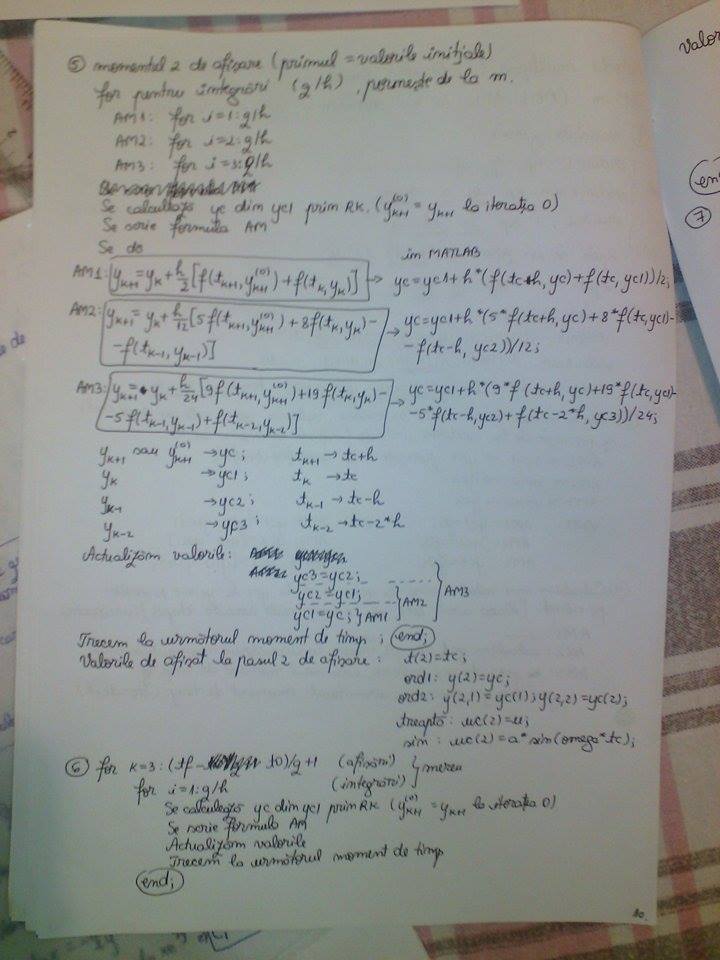 ⑤ momentul 2 de afișare (primul = valorile inițiale)
for pentru integrări (g/h), pornește de la m.
AM1: for i=1:g/h
AM2: for i=2:g/h
AM3: for i=3:g/h
Se calculează yc din yc1 prin RK. (y_{k+1}^{(0)} = y_{k+1} la iterația 0)
Se scrie formula AM
Se do
in MATLAB
AM1: y_{k+1} = y_k + h/2 [f(t_{k+1}, y_{k+1}^{(0)}) + f(t_k, y_k)] → yc = yc1 + h*(f(tc+h, yc) + f(tc, yc1))/2;
AM2: y_{k+1} = y_k + h/12 [5f(t_{k+1}, y_{k+1}^{(0)}) + 8f(t_k, y_k) - → yc = yc1 + h*(5*f(tc+h, yc) + 8*f(tc, yc1)-
- f(t_{k-1}, y_{k-1})] - f(tc-h, yc2))/12;
AM3: y_{k+1} = y_k + h/24 [9f(t_{k+1}, y_{k+1}^{(0)}) + 19f(t_k, y_k) - → yc = yc1 + h*(9*f(tc+h, yc) + 19*f(tc, yc1)-
- 5f(t_{k-1}, y_{k-1}) + f(t_{k-2}, y_{k-2})] - 5*f(tc-h, yc2) + f(tc-2*h, yc3))/24;
y_{k+1} sau y_{k+1}^{(0)} → yc; t_{k+1} → tc+h
y_k → yc1; t_k → tc
y_{k-1} → yc2; t_{k-1} → tc-h
y_{k-2} → yc3; t_{k-2} → tc-2*h
Actualizăm valorile:
yc3 = yc2;
yc2 = yc1; } AM3
yc1 = yc; } AM1 } AM2
Trecem la următorul moment de timp; end;
Valorile de afișat la pasul 2 de afișare: t(2) = tc;
ord1: y(2) = yc;
ord2: y(2,1) = yc(1); y(2,2) = yc(2);
treaptă: uc(2) = u;
sin: uc(2) = a*sin(omega*tc);
⑥ for k=3:(tf- t0)/g+1 (afișări) } mereu
for i=1:g/h (integrări)
Se calculează yc din yc1 prin RK (y_{k+1}^{(0)} = y_{k+1} la iterația 0)
Se scrie formula AM
Actualizăm valorile
Trecem la următorul moment de timp
end;
10.
valor
⑦